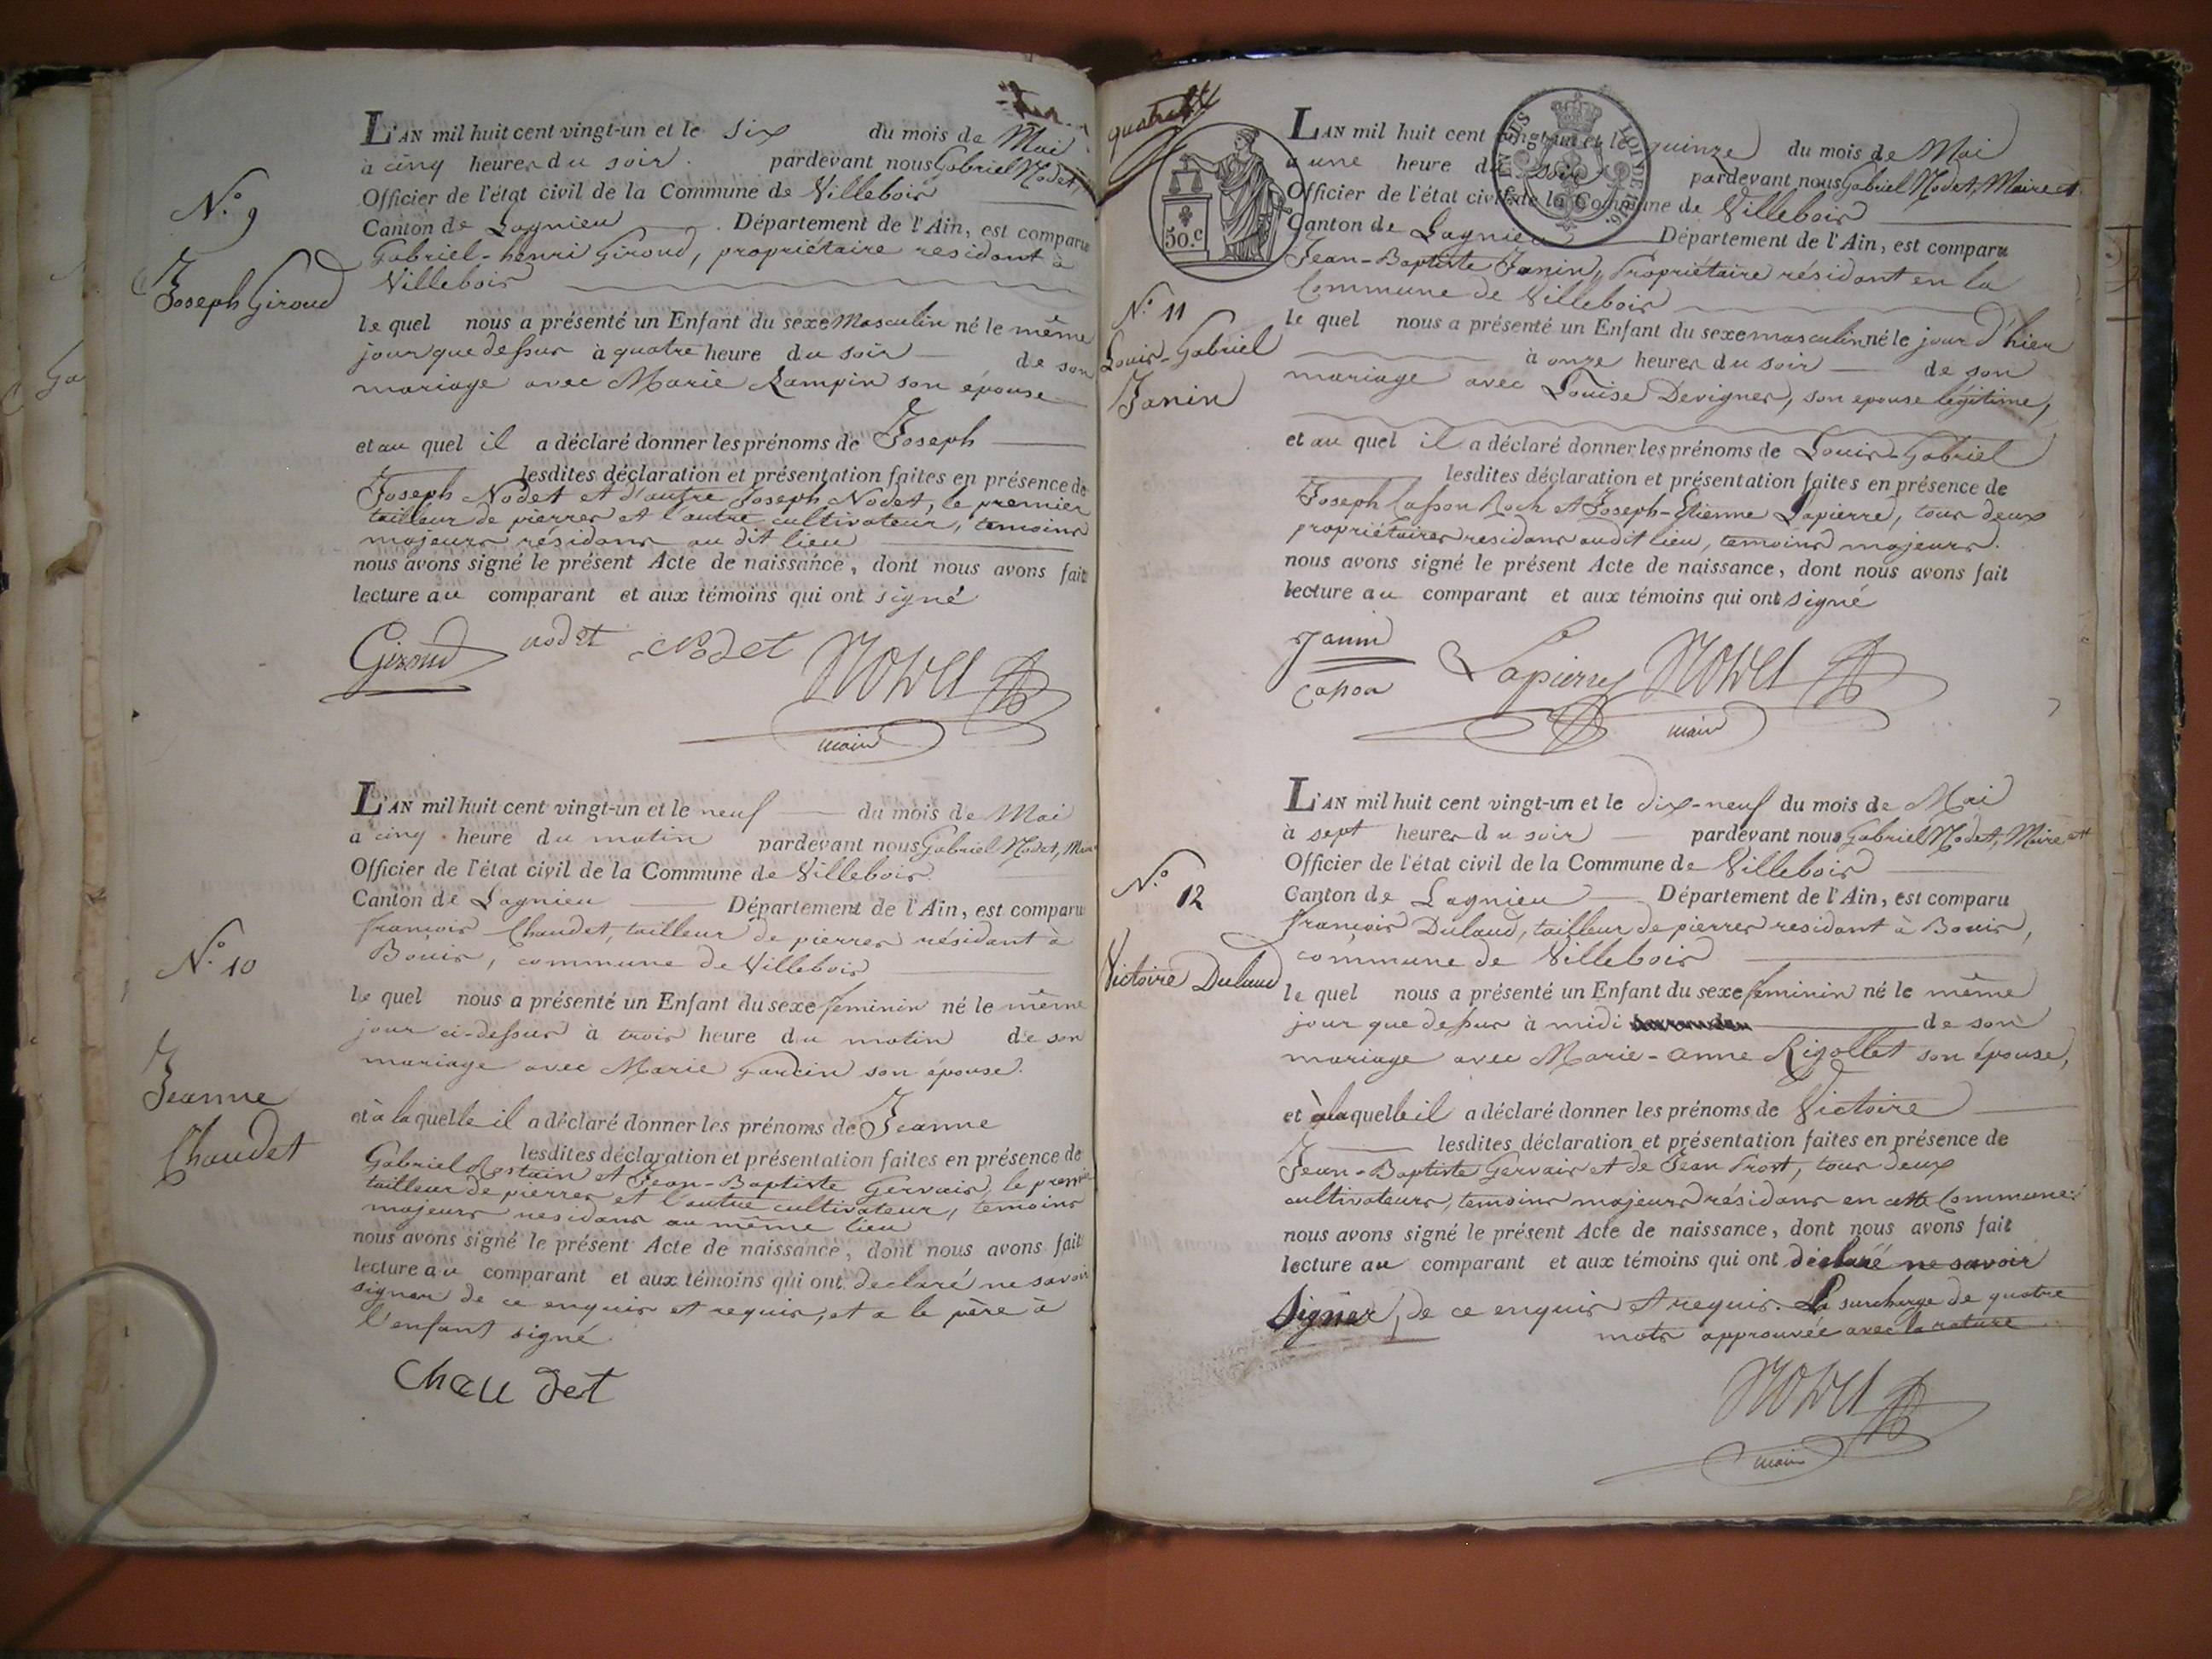 N.o 9
Joseph Giroud
L'AN mil huit cent vingt-un et le six du mois de Mai
à cinq heures du soir. pardevant nous Gabriel Nodet,
Officier de l'état civil de la Commune de Villebois
Canton de Lagnieu. Département de l'Ain, est comparu
Gabriel-henri Giroud, propriétaire residant à
Villebois
le quel nous a présenté un Enfant du sexe Masculin né le même
jour que dessus à quatre heure du soir de son
mariage avec Marie Rampin son épouse
et au quel il a déclaré donner les prénoms de Joseph
lesdites déclaration et présentation faites en présence de
Joseph Nodet et d'autre Joseph Nodet, le premier
tailleur de pierres et l'autre cultivateur, temoins
majeurs résidans au dit lieu
nous avons signé le présent Acte de naissance, dont nous avons fait
lecture au comparant et aux témoins qui ont signé
Giroud nodet Nodet Nodet
maire
N.o 10
Jeanne
Chaudet
L'AN mil huit cent vingt-un et le neuf du mois de Mai
à cinq heure du matin pardevant nous Gabriel Nodet,
Officier de l'état civil de la Commune de Villebois.
Canton de Lagnieu Département de l'Ain, est comparu
françois Chaudet, tailleur de pierres résidant à
Bouis, commune de Villebois
le quel nous a présenté un Enfant du sexe feminin né le même
jour ci-dessus à trois heure du matin de son
mariage avec Marie Gardin son épouse.
et à la quelle il a déclaré donner les prénoms de Jeanne
lesdites déclaration et présentation faites en présence de
Gabriel Rostain et Jean-Baptiste Gervais, le premier
tailleur de pierres et l'autre cultivateur, temoins
majeurs residans au même lieu
nous avons signé le présent Acte de naissance, dont nous avons fait
lecture au comparant et aux témoins qui ont declaré ne savoir
signer de ce enquis et requis, et a le père à
l'enfant signé.
Chaudet
50.c
LOI DE
N.o 11
Louis-Gabriel
Janin
L'AN mil huit cent vingt-un et le quinze du mois de Mai
à une heure du soir pardevant nous Gabriel Nodet, Maire et
Officier de l'état civil de la Commune de Villebois
Canton de Lagnieu Département de l'Ain, est comparu
Jean-Baptiste Janin, Propriétaire résidant en la
Commune de Villebois
le quel nous a présenté un Enfant du sexe masculin né le jour d'hier
à onze heures du soir de son
mariage avec Louise Devignes, son epouse légitime,
et au quel il a déclaré donner les prénoms de Louis-Gabriel
lesdites déclaration et présentation faites en présence de
Joseph Casson Roch et Joseph-Etienne Lapierre, tous deux
propriétaires residans audit lieu, temoins majeurs.
nous avons signé le présent Acte de naissance, dont nous avons fait
lecture au comparant et aux témoins qui ont signé
Janin Lapierre Nodet
Casson maire
N.o 12
Victoire Dulaud
L'AN mil huit cent vingt-un et le dix-neuf du mois de Mai
à sept heures du soir pardevant nous Gabriel Nodet, Maire et
Officier de l'état civil de la Commune de Villebois
Canton de Lagnieu Département de l'Ain, est comparu
françois Dulaud, tailleur de pierres residant à Bouis,
commune de Villebois
le quel nous a présenté un Enfant du sexe feminin né le même
jour que dessus à midi de son
mariage avec Marie-anne Rigollet son épouse,
et à la quelle il a déclaré donner les prénoms de Victoire
lesdites déclaration et présentation faites en présence de
Jean-Baptiste Gervais et de Jean Prost, tous deux
cultivateurs, temoins majeurs résidans en cette Commune
nous avons signé le présent Acte de naissance, dont nous avons fait
lecture au comparant et aux témoins qui ont déclaré ne savoir
Signer, de ce enquis et requis. La surcharge de quatre
mots approuvée avec la rature
Nodet
maire